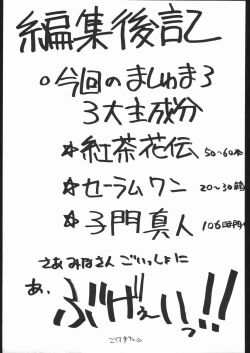 編集後記
○今回のましゅまろ
3大主成分
☆紅茶花伝 50~60本
☆セーラムワン 20~30箱
☆子門真人 106時間
さあみなさんごいっしょに
あ、
ぶげぇーいっ!!